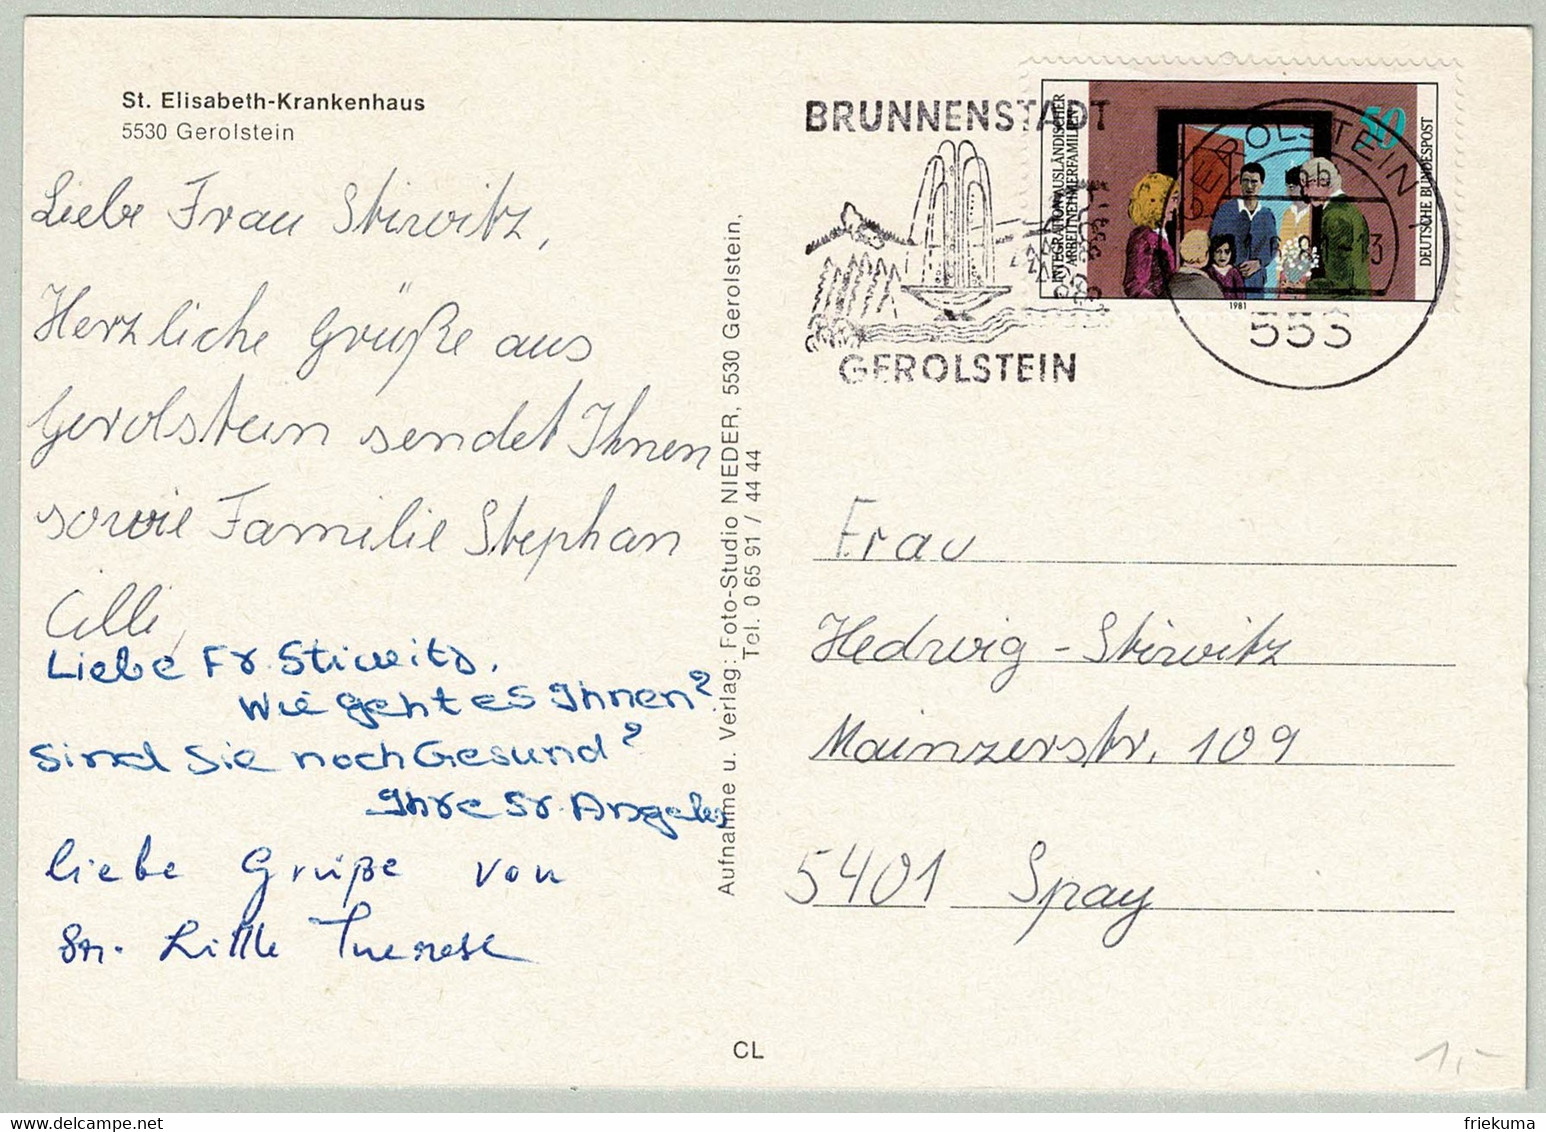 St. Elisabeth-Krankenhaus
5530 Gerolstein
Liebe Frau Stirwitz,
Herzliche Grüße aus
Gerolstein sendet Ihnen
sowie Familie Stephan
Cilli,
Liebe Fr. Stirwitz,
Wie geht es Ihnen?
Sind Sie noch Gesund?
Ihre Sr. Angeles
liebe Grüße von
Sr. Little Therese
Aufnahme u. Verlag: Foto-Studio NIEDER, 5530 Gerolstein,
Tel. 0 65 91 / 44 44
CL
BRUNNENSTADT
GEROLSTEIN
INTEGRATION AUSLÄNDISCHER
ARBEITNEHMERFAMILIEN
50
DEUTSCHE BUNDESPOST
1981
GEROLSTEIN 1
ob
8 1-13
553
Frau
Hedwig - Stirwitz
Mainzerstr. 109
5401 Spay
1,-
friekuma